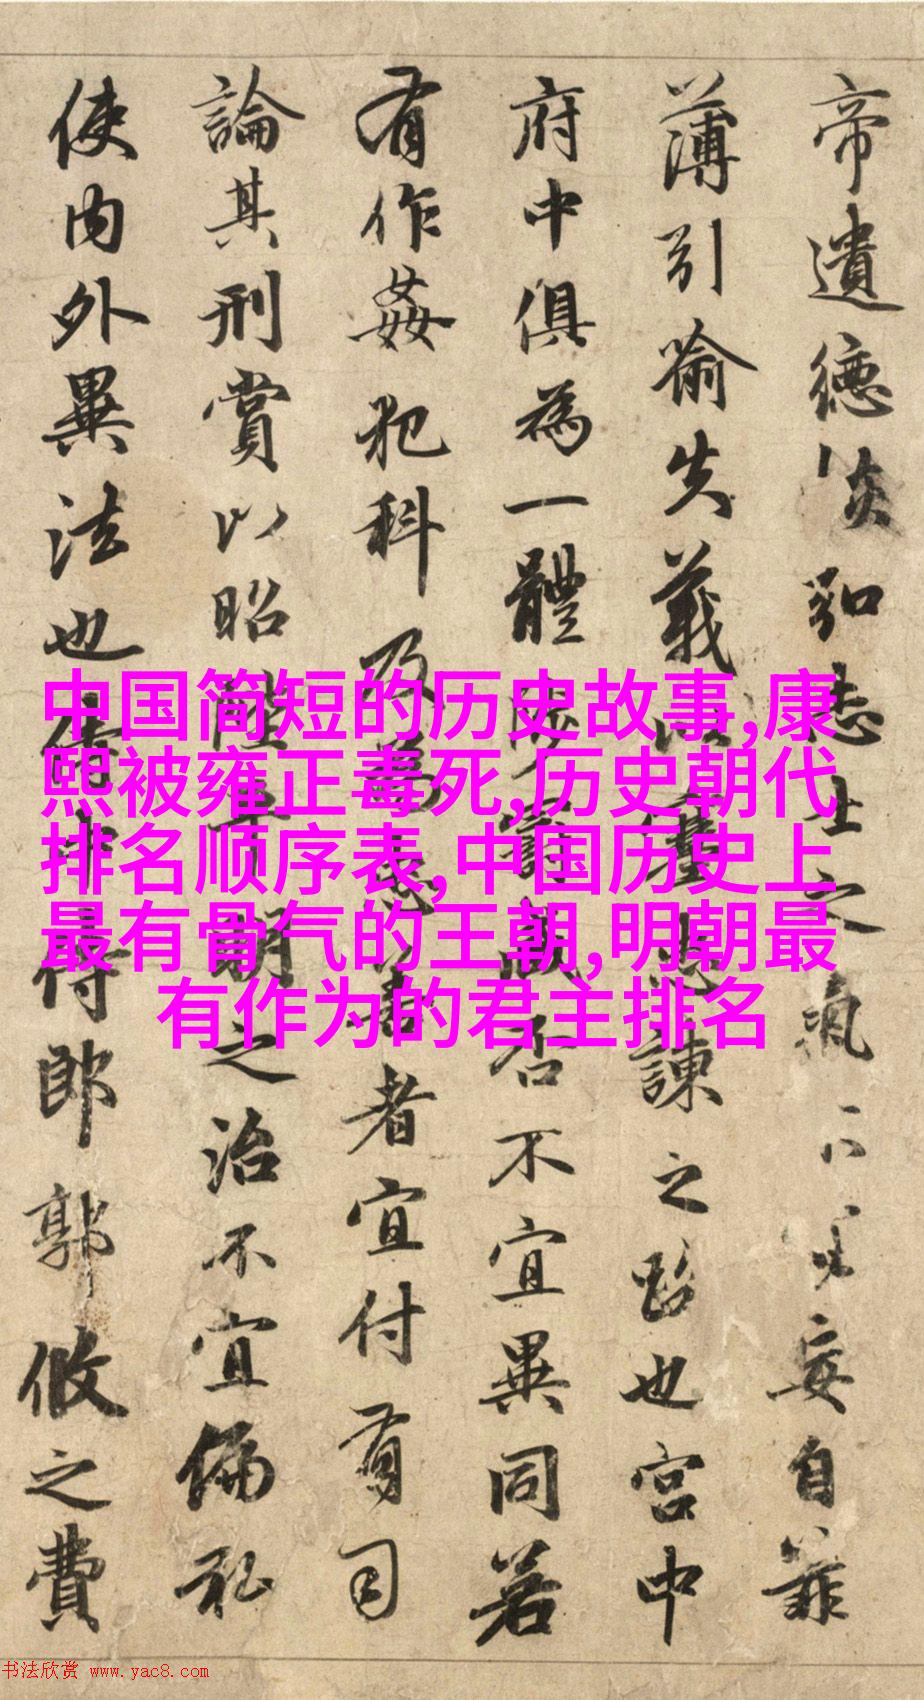 帝遺德恢弘志士之氣不妄自菲
薄引喻失義以塞忠諫之路也宮中
府中俱為一體陟罰臧否不宜異同若
有作姦犯科及為忠善者宜付有司
論其刑賞以昭陛平明之治不宜偏私
使內外異法也侍中侍郎郭攸之費
中国简短的历史故事,康
熙被雍正毒死,历史朝代
排名顺序表,中国历史上
最有骨气的王朝,明朝最
有作为的君主排名
书法欣赏 www.yac8.com